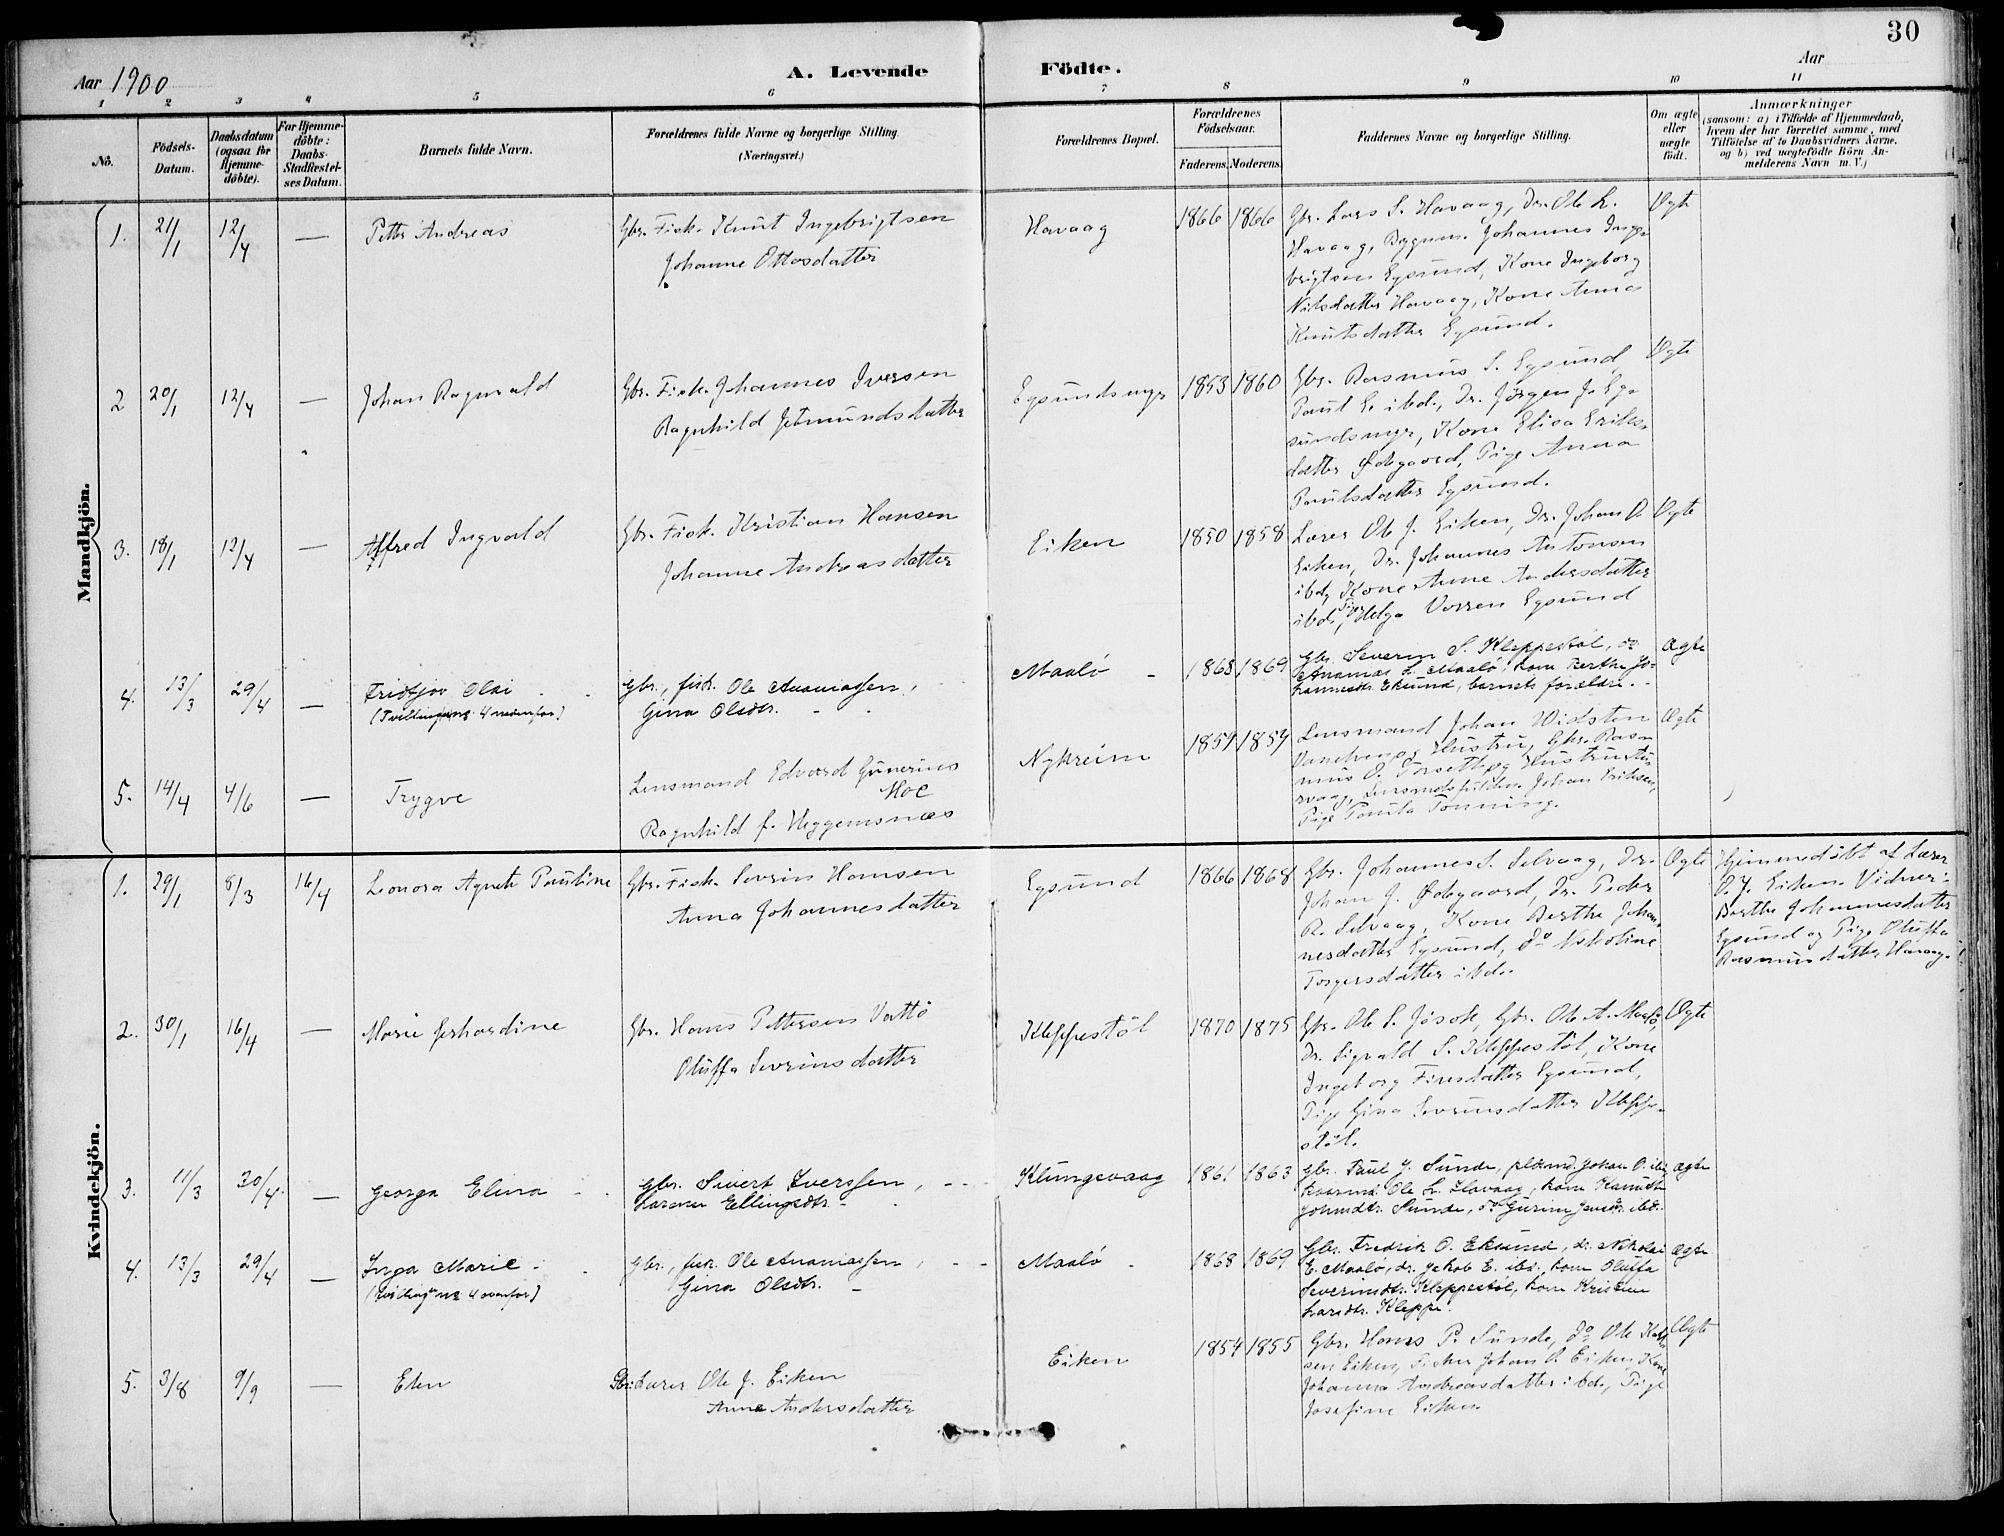 30
Aar 1900
A. Levende Födte.
Aar
1 2 3 4 5 6 7 8 9 10 11
No.
Födsels-Datum.
Daabsdatum (ogsaa for Hjemme-döbte).
For Hjemme-döbte: Daabs-Stadfæstel-ses Datum.
Barnets fulde Navn.
Forældrenes fulde Navne og borgerlige Stilling. (Næringsvei.)
Forældrenes Bopæl.
Forældrenes Födselsaar.
Faderens. Moderens.
Faddernes Navne og borgerlige Stilling.
Om ægte eller uægte födt.
Anmærkninger
(saasom: a) i Tilfælde af Hjemmedaab, hvem der har forrettet samme, med Tilföielse af to Daabsvidners Navne, og b) ved uægtefödte Börn Anmelderens Navn m. V.)
Mandkjön.
1. 21/1 12/4 — Petter Andreas
Gbr. Fisk. Knut Ingebrigtsen
Johanne Ottosdatter
Havaag 1866 1866
Gbr. Lars S. Havaag, Dr. Ole L.
Havaag, Bygm. Johannes Inge-
brigtsen Egsund, Kone Ingeborg
Nilsdatter Havaag, Kone Anna
Knutsdatter Egsund.
Ægte
2 20/1 12/4 — Johan Ragnvald
Gbr. Fisk. Johannes Iversen
Ragnhild Jetmundsdatter
Egsundsmyr 1853 1860
Gbr. Rasmus S. Egsund
Paul E. ibd., Dr. Jørgen J. Eg-
sundsmyr, Kone Elisa Eriks-
datter Ødegaard, Pige Anna
Paulsdatter Egsund.
Ægte
3. 18/1 12/4 — Alfred Ingvald
Gbr. Fisk. Kristian Hansen
Johanne Andreasdatter
Eiken 1850 1858
Lærer Ole J. Eiken, Dr. Johan O.
Eiken, Dr. Johannes Antonsen
ibd, Kone Anne Andersdatter
ibd, Pige Helga Vorren Egsund
Ægte
4. 13/3 29/4 — Fridtjov Olai
(Tvilling no 4 nedenfor)
Gbr., fisk. Ole Ananiassen,
Gina Olsdtr.
Maalö 1868 1869
Gbr. Severin S. Kleppestöl, do
Ananias L. Maalö, kone Berthe Jo-
hannesdtr. Eksund, barnets forældre.
Ægte
5. 14/4 4/6 — Trygve
Lensmand Edvard Gunerius
Moe
Ragnhild f. Heggemsnæs
Nykreim 1854 1854
Lensmand Johan Widsten
og Hustru, Gbr. Ras-
mus O. og Hustru
Lensmdsfuldm. Johan Eriksen,
Pige Paula Tonning.
Ægte
Kvindekjön.
1. 29/1 8/3 16/4 Leonora Agnete Pauline
Gbr. Fisk. Severin Hansen
Anna Johannesdatter
Egsund 1866 1868
Gbr. Johannes S. Selvaag, Dr.
Johan J. Ødegaard, Dr. Peder
R. Selvaag, Kone Berthe Johan-
nesdatter Egsund, Do Nikoline
Torgersdatter ibd.
Ægte
Hjemmedöbt af Lærer
O. J. Eiken. Vidner:
Berthe Johannesdatter
Egsund og Pige Oluffa
Rasmusdatter Havaag.
2. 30/1 16/4 — Marie Gerhardine
Gbr. Hans Pettersen Vattö
Oluffa Severinsdatter
Kleppestöl 1870 1875
Gbr. Ole S. Jösok, Gbr. Ole A. Maalö,
Dr. Sigvald S. Kleppestöl, Kone
Ingeborg Finsdatter Egsund,
Pige Gina Severinsdatter Kleppe-
stöl.
Ægte
3. 11/3 30/4 — Georga Elina
Gbr. Sivert Iverssen,
Karen Ellingsdtr.
Klungevaag 1861 1863
Gbr. Paul J. Sunde, Johan O. ibd
Ole L. Havaag, kone
Johnsdtr. Sunde, do Gurine Jensdtr. ibd.
Ægte
4. 13/3 29/4 — Inga Marie
(Tvilling no 4 ovenfor)
Gbr., fisk. Ole Ananiassen,
Gina Olsdtr.
Maalö 1868 1869
Gbr. Fredrik O. Eksund, dr. Nikolai
E. Maalö, dr. Jakob E. ibd., kone Oluffa
Severinsdtr. Kleppestöl, kone Kristine
Larsdtr. Kleppe.
Ægte
5. 3/8 9/9 — Elen
Gbr. Lærer Ole J. Eiken
Anne Andersdatter
Eiken 1854 1855
Gbr. Hans P. Sunde, Do Ole
sen Eiken, Fisker Johan O. Eiken, Kone
Johanna Andreasdatter ibd., Pige
Josefine Eiken.
Ægte